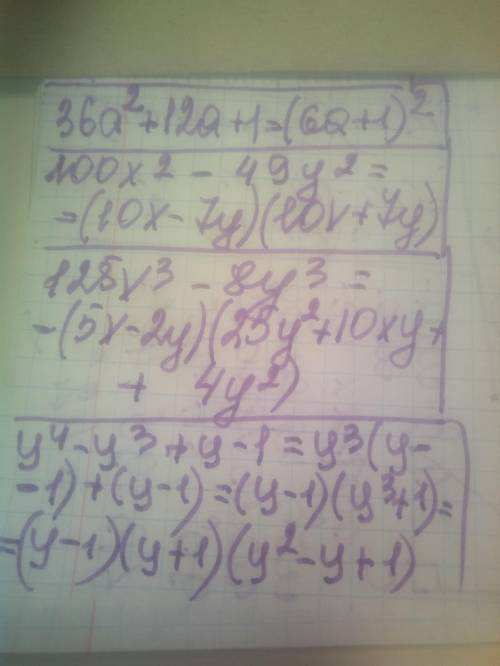 36a²+12a+1=(6a+1)²
100x2 - 49y2=
=(10x-7y)(10x+7y)
125x³ - 8y³ =
-(5x-2y)(25y²+10xy+
+ 4y²)
y⁴-y³+y-1=y³(y-
-1)+(y-1)=(y-1)(y³+1)=
=(y-1)(y+1)(y²-y+1)